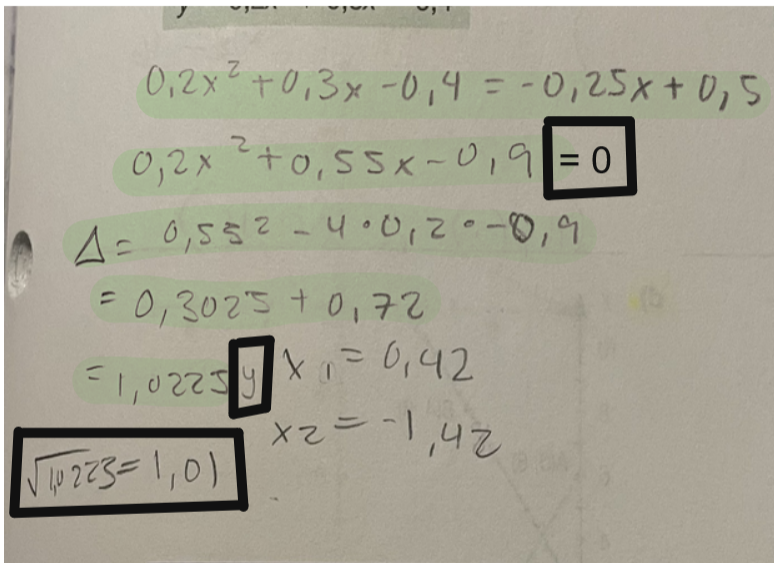 0,2x² + 0,3x - 0,4 = -0,25x + 0,5
0,2x² + 0,55x - 0,9 = 0
Δ = 0,55² - 4 · 0,2 · -0,9
= 0,3025 + 0,72
= 1,0225 y x₁ = 0,42
x2 = -1,42
√1,0223 = 1,01